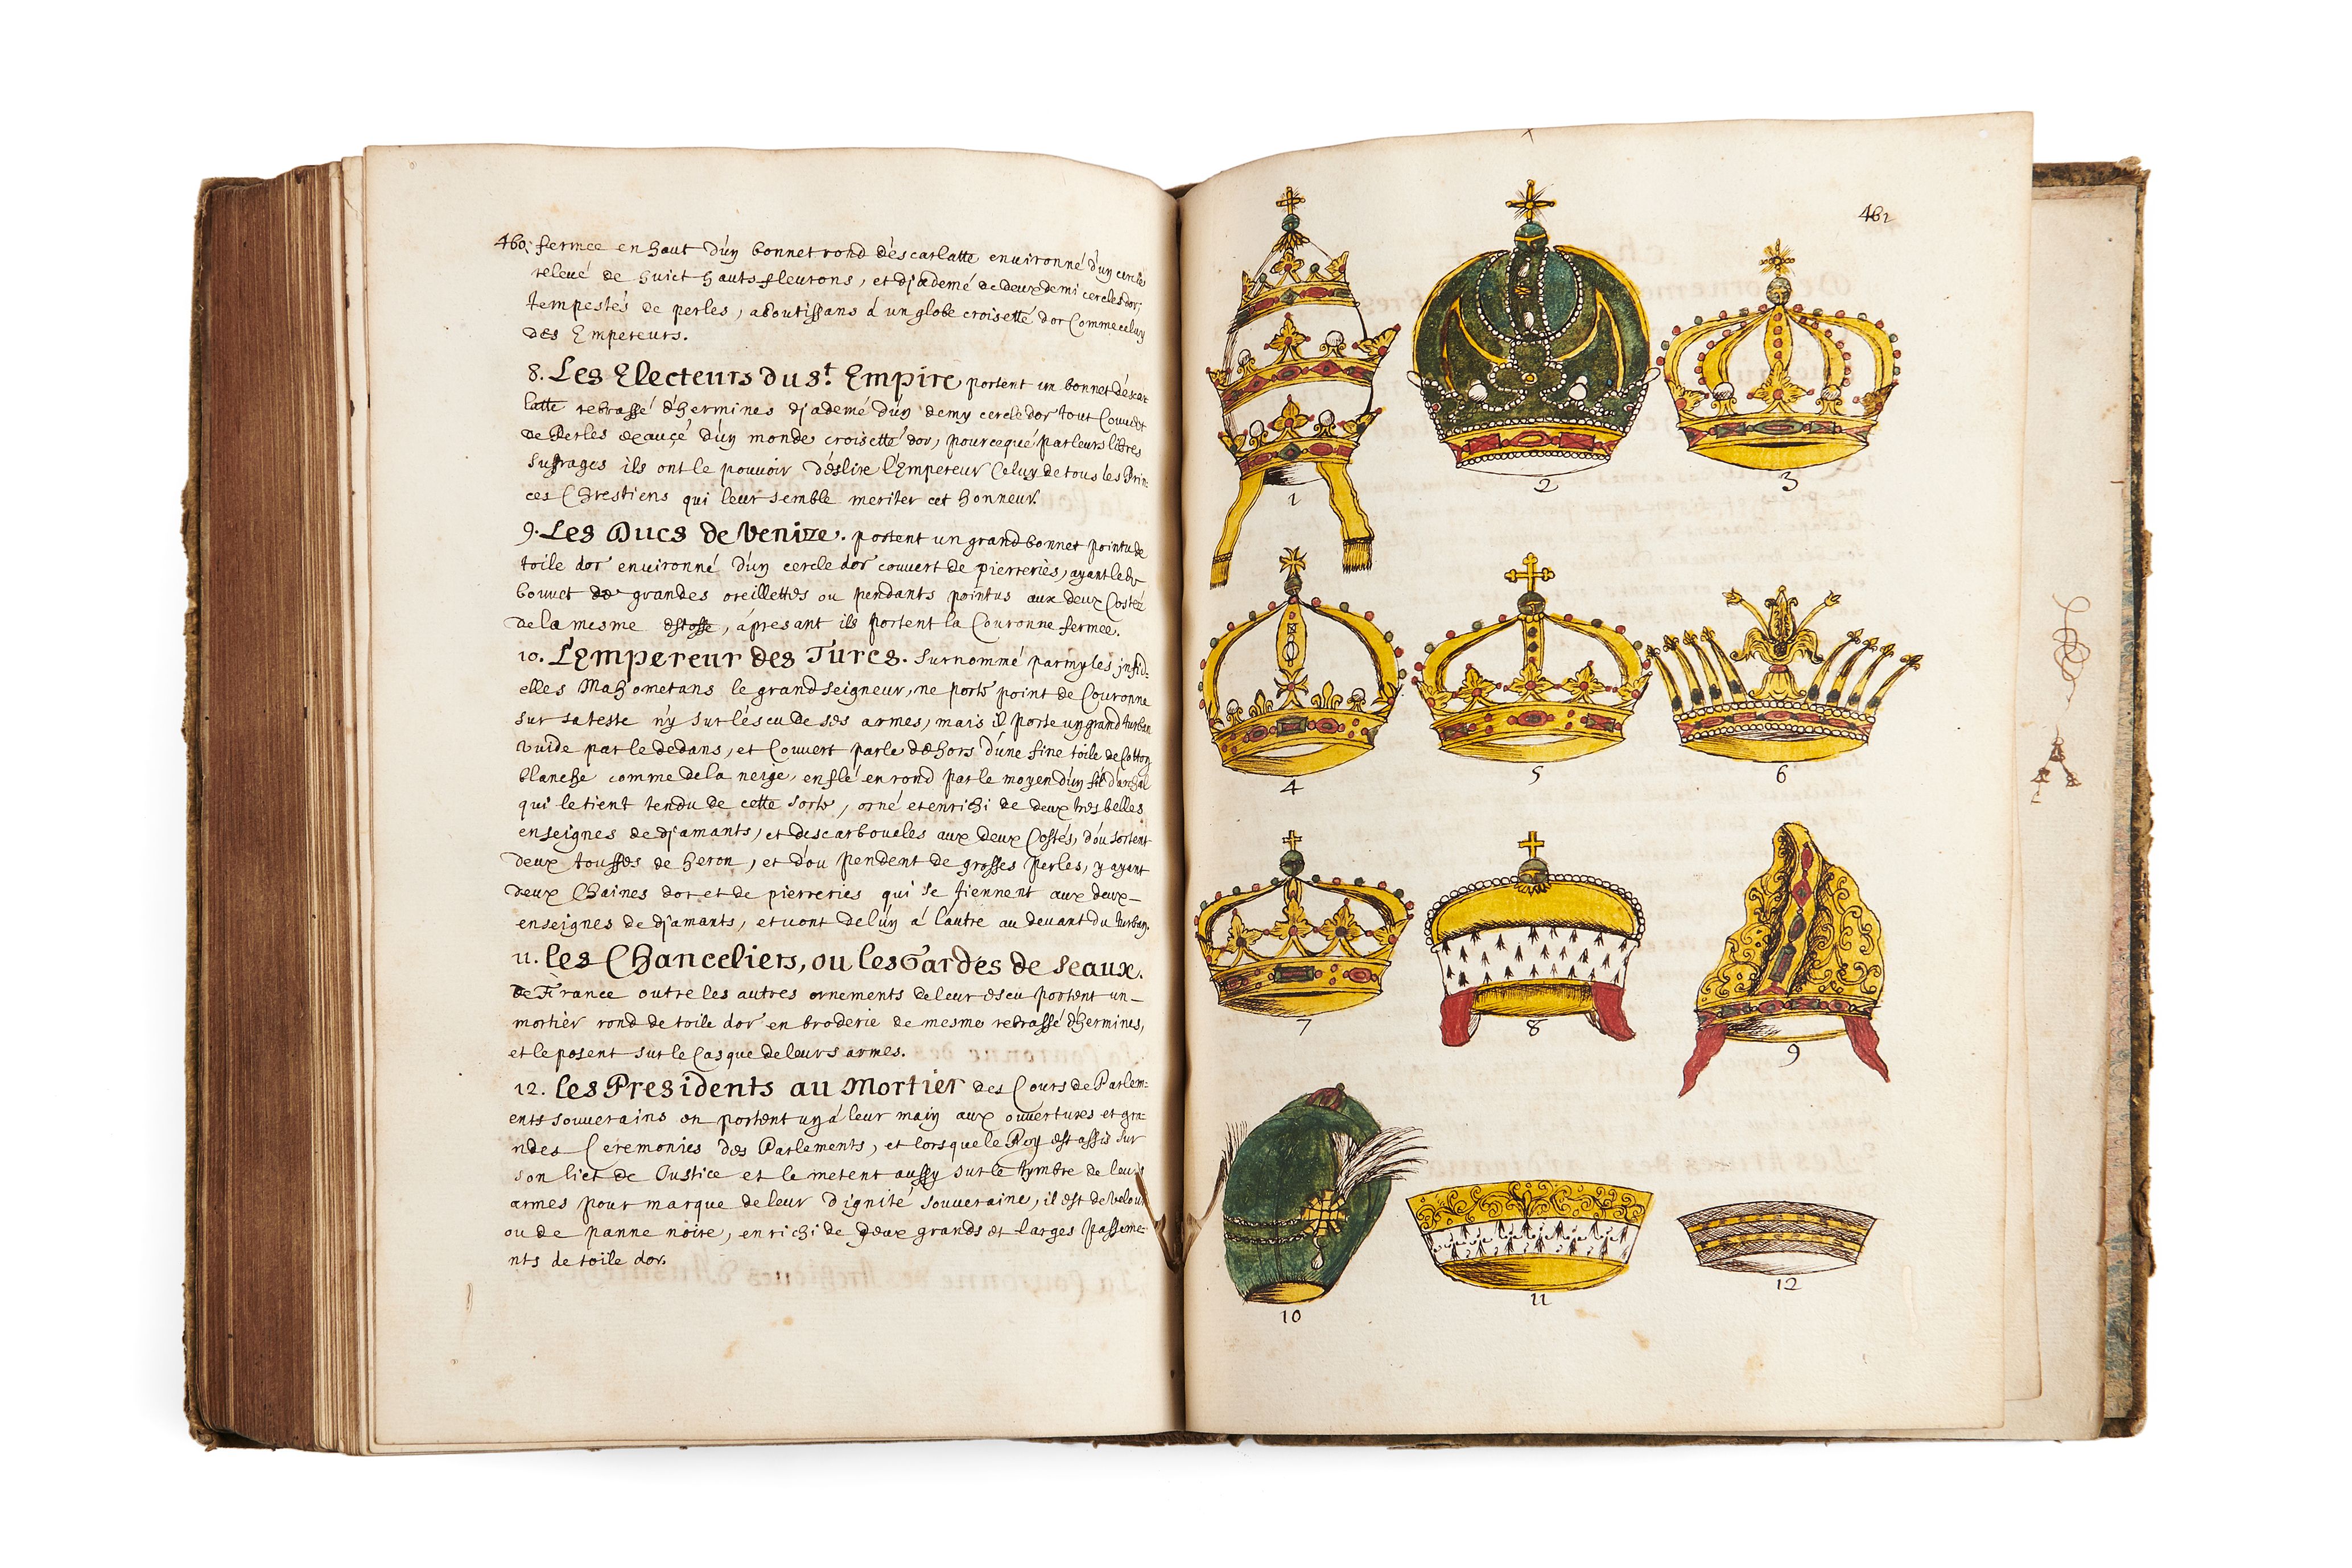 460. fermée en haut d'uy bonnet rond d'escarlatte enuironné d'uy cercle
releué de huict hauts fleurons, et djademé de deux demi cercles dor,
tempestés de perles, aboutissans á un globe croisetté dor Comme celuy
des Empereurs.
8. Les Electeurs du St. Empire portent un bonnet déscar
latte rebrassé d'hermines djademé d'uy demy cercle dor tout Couuert
de Perles d'uy monde croisetté dor, pource qué par leurs libres
sufrages ils ont le pouvoir d'eslire l'Empereur Celuy de tous les Prin-
ces Chrestiens qui leur semble meriter cet honneur.
9. Les Ducs de Venize. portent un grand bonnet pointu de
toile dor enuironné d'uy cercle dor couuert de pierreries, ayant led
bonnet de grandes oreillettes ou pendants pointus aux deux Costez
de la mesme estoffe, ápresant ils portent la Couronne fermée.
10. L'Empereur des Turcs. surnommé parmy les jnfid-
elles Mahometans le grand seigneur, ne porte point de Couronne
sur sa teste n'y sur l'éscu de ses armes, mais il porte uy grand turban
vuide par le dedans, et Couuert par le dehors d'une fine toile de Cotton
blanche comme de la neige, enflé en rond par le moyen d'uy fil d'archal
qui le tient tendu de cette sorte, orné et enrichi de deux tres belles
enseignes de djamants, et descarboucles aux deux Costés, d'oú sortent
deux touffes de heron, et d'ou pendent de grosses perles, y ayant
deux Chaines dor et de pierreries qui se tiennent aux deux-
enseignes de djamants, et uont de lúy á lautre au deuant du turban.
11. les Chanceliers, ou les Gardes de seaux.
de France outre les autres ornements de leur escu portent un-
mortier rond de toile dor en broderie de mesme rebrassé d'hermines,
et le posent sur le Casque de leurs armes.
12. les Presidents au Mortier des Cours de Parlem-
ents souuerains en portent uy á leur main aux ouuertures et gra-
ndes Ceremonies des Parlements, et lorsque le Roy est assis sur
son lict de Justice et le metent aussy sur le tymbre de leurs
armes pour marque de leur Dignité souueraine, il est de velours
ou de panne noire, enrichi de deux grands et larges passeme-
nts de toile dor.
461
1
2
3
4
5
6
7
8
9
10
11
12